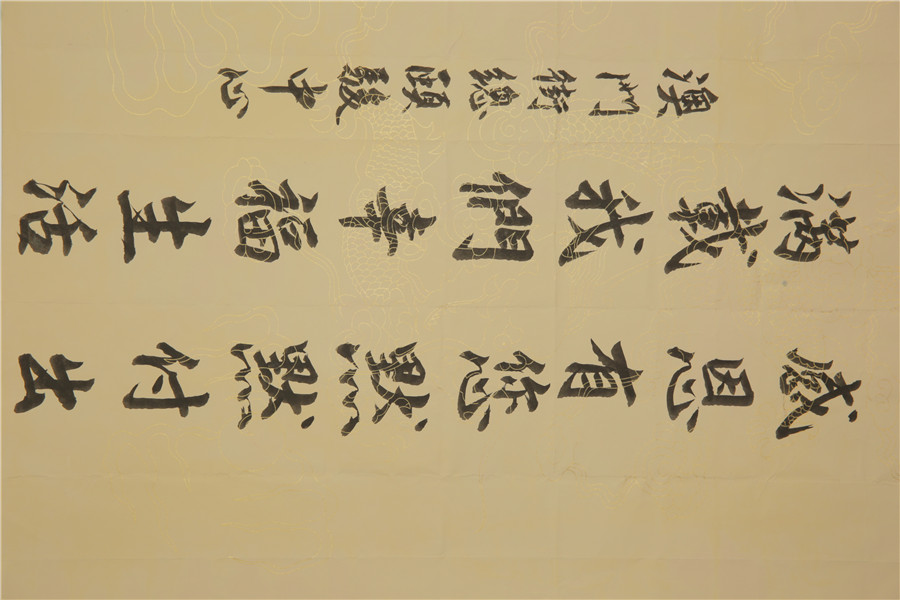 感恩有您默默付出
滿載我們幸福生活
澳門街總頤駿中心